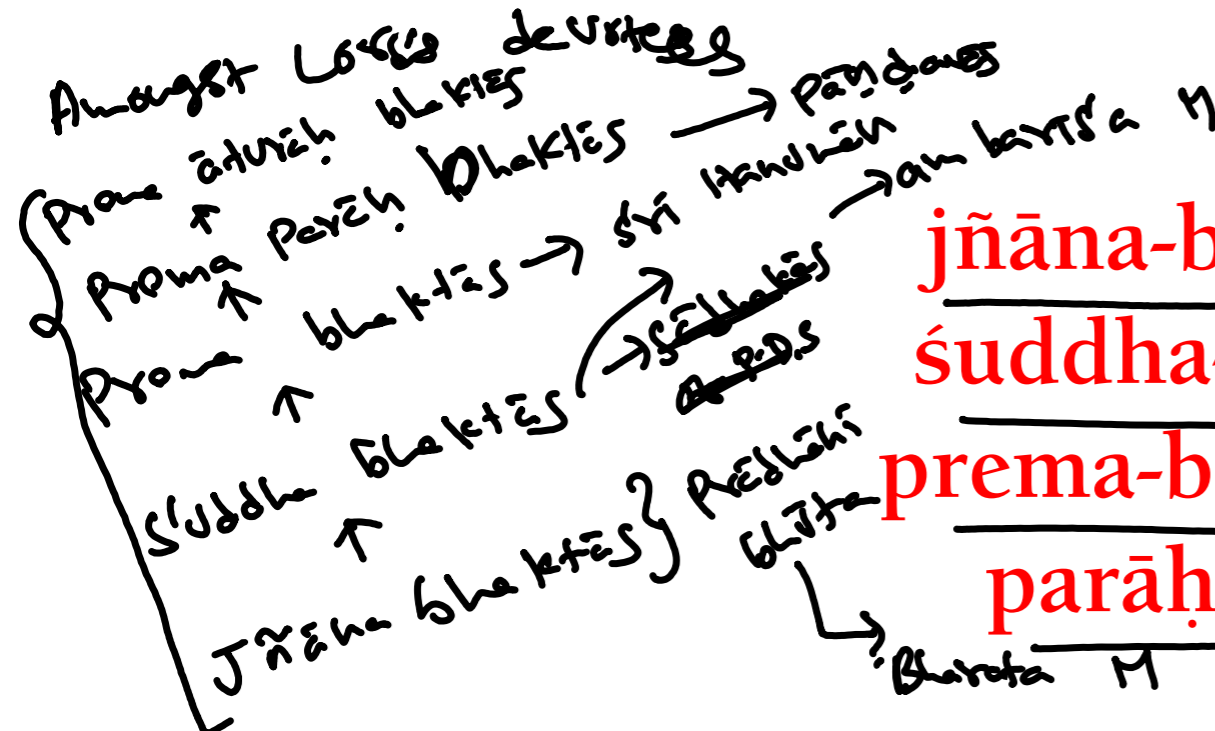 Amongst Lord's devotees
Prema āturāḥ bhaktās
Prema parāḥ bhaktās → Pāṇḍavas
Prema bhaktās → Śrī Hanumān
Śuddha bhaktās → Sādhakās → ambarīśa M
P.D.S
Jñāna bhaktās } Prādhānī
bhūta
Bharata M
jñāna-b
śuddha-
prema-b
parāḥ